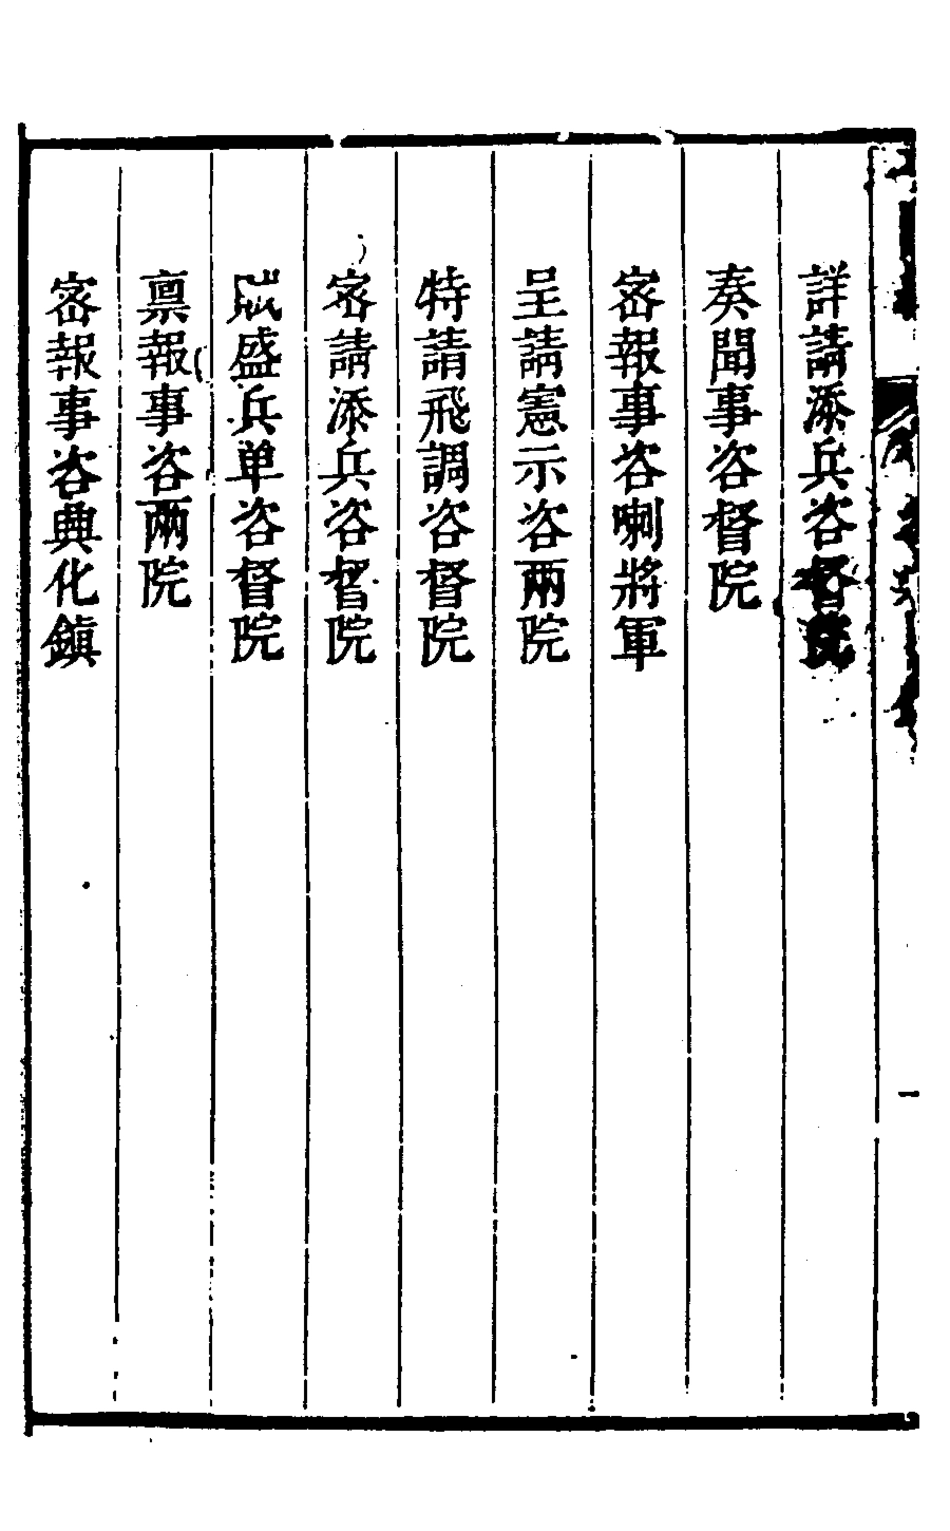 詳請添兵咨督院
奏聞事咨督院
宻報事咨喇將軍
呈請憲示咨兩院
特請飛調咨督院
宻請添兵咨督院
賊盛兵单咨督院
禀報事咨兩院
宻報事咨興化鎮